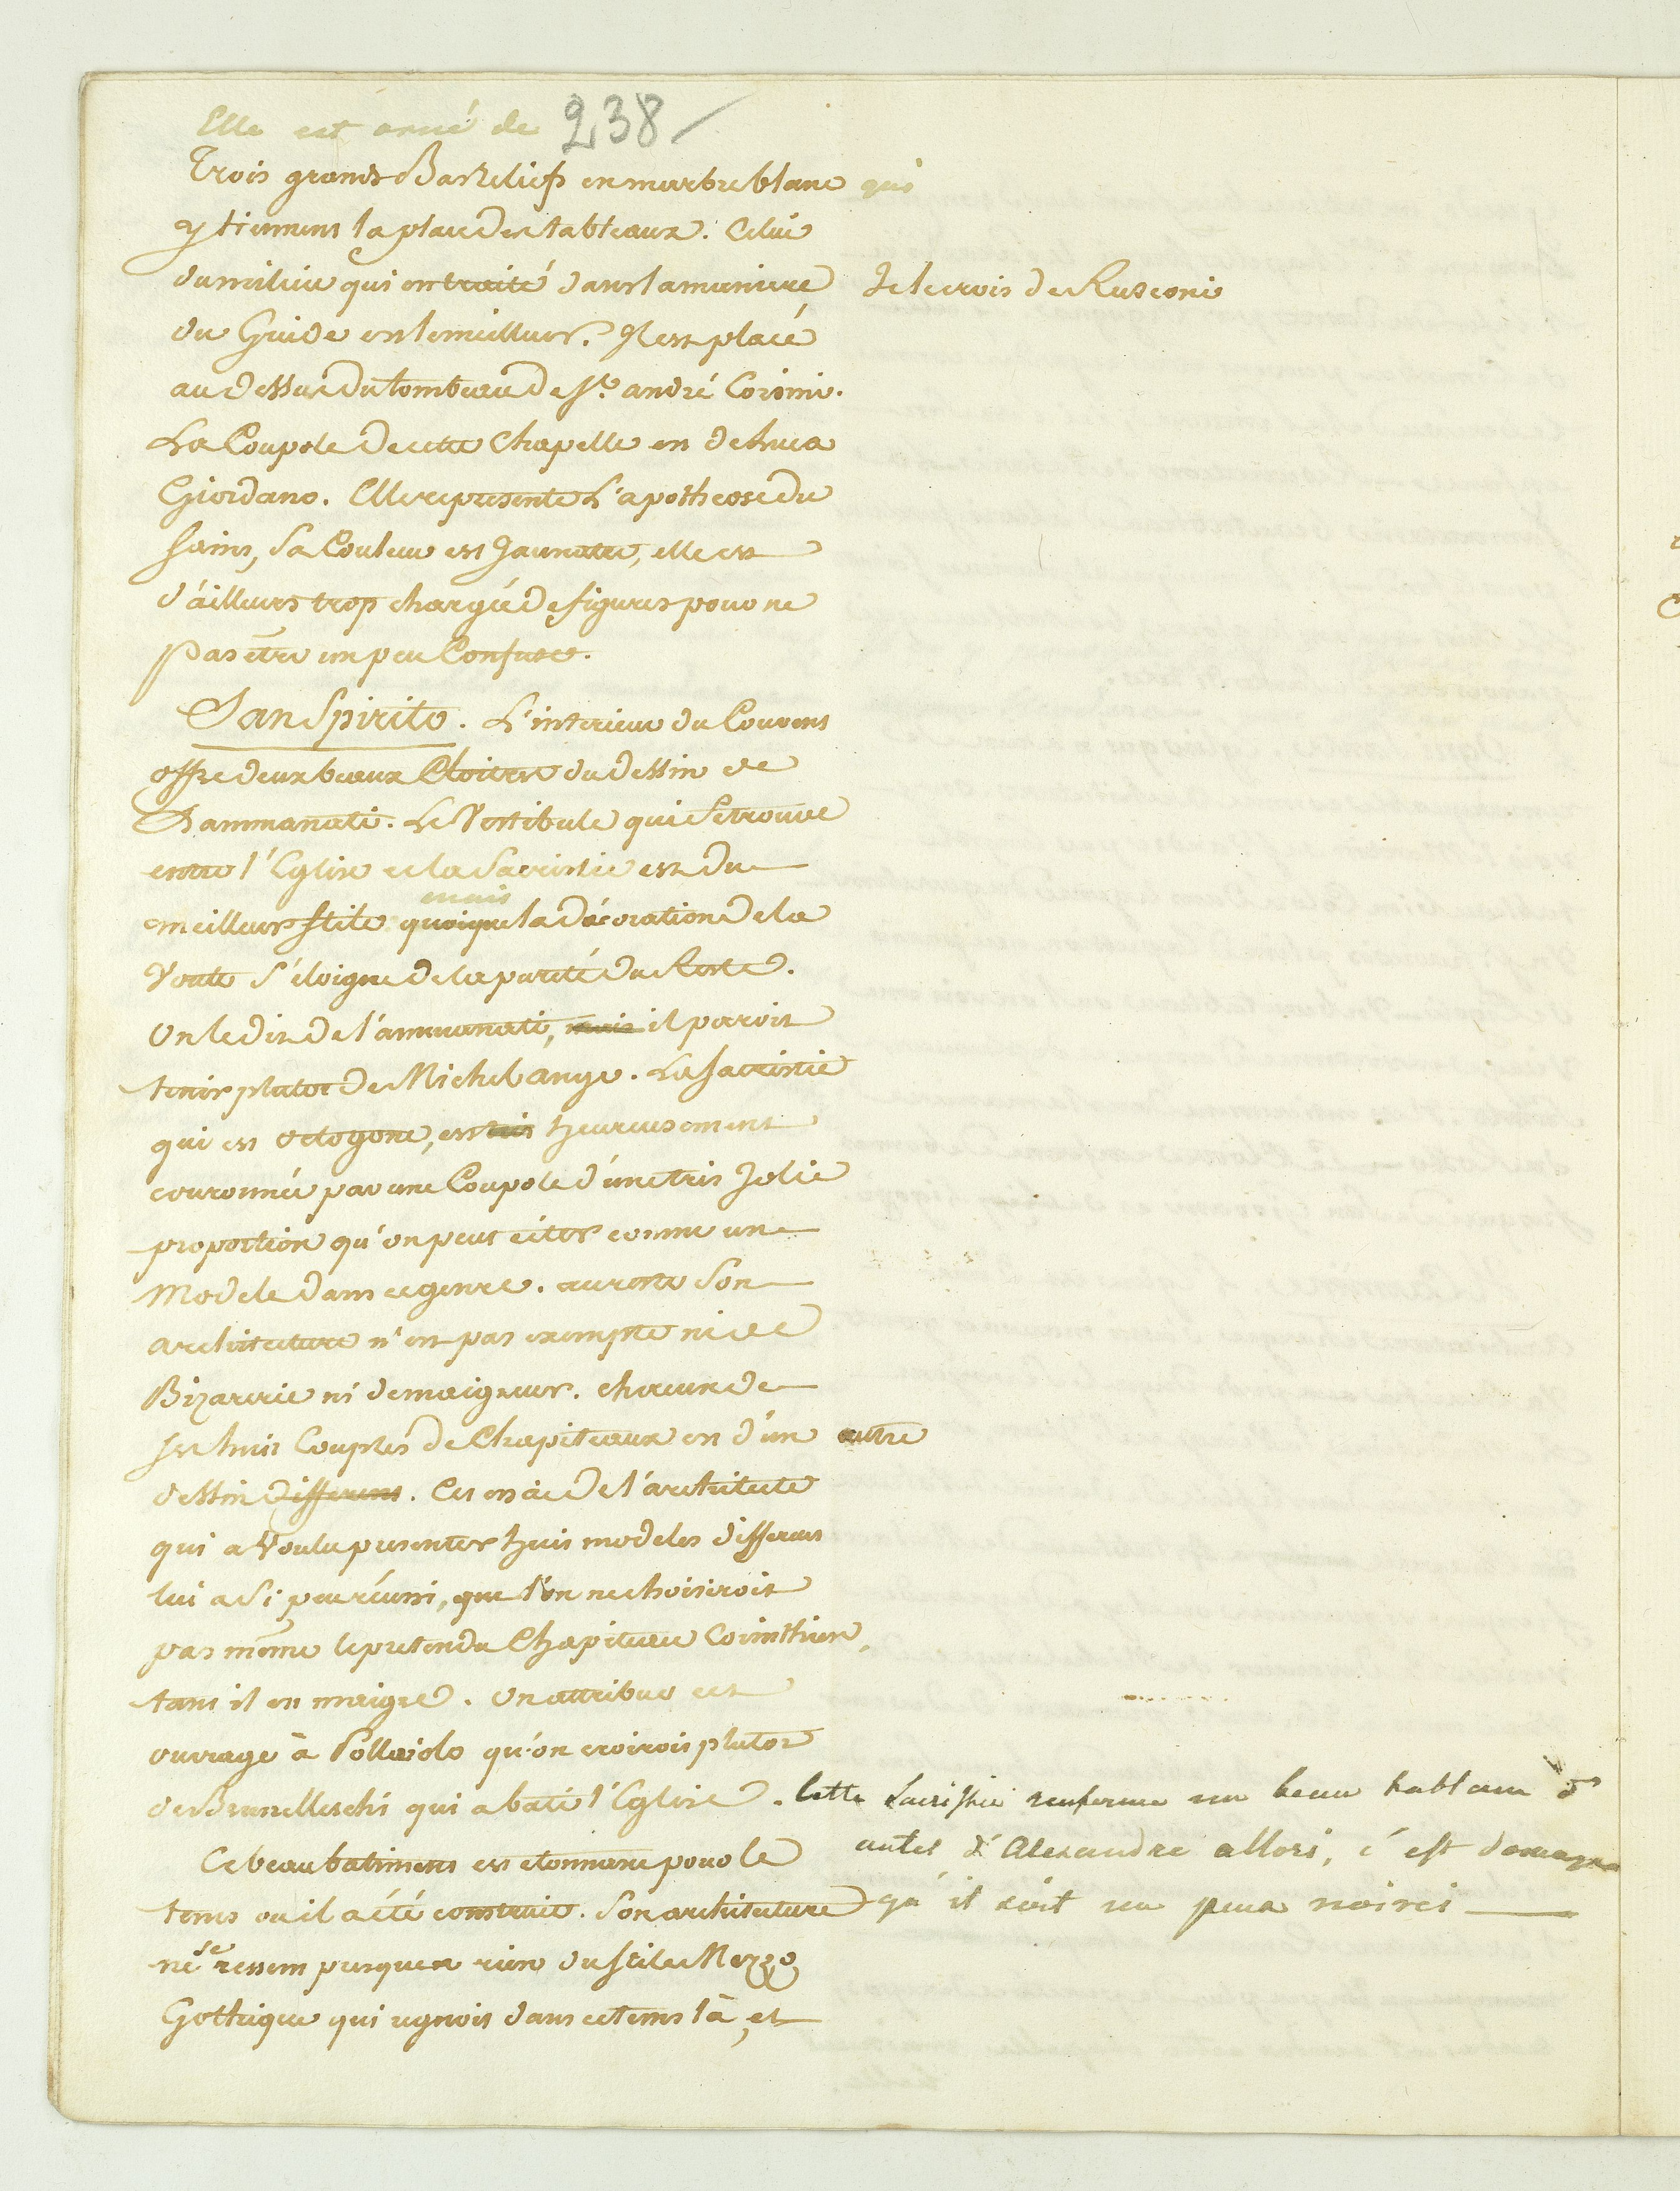 Elle est orné de 238
Trois grands Bas reliefs en marbre blanc qui
y tiennent la place des tableaux. Celui
du milieu qui est traité dans la maniere Je le crois de Rusconi
du Guide est le meilleur. Il est placé
au dessus du tombeau de St. andré Corsini.
La Coupole de cette Chapelle est de Luca
Giordano. Elle represente L'apotheose du
saint, sa Couleur est Jaunatre, elle est
d'ailleurs trop chargée de figures pour ne
pas être un peu Confuse.
San Spirito. L'interieur du Couvent
offre deux beaux Cloitres du dessin de
L'ammanati. Le Vestibule qui se trouve
entre l'Eglise et la Sacristie est du
mais
meilleur stile quoique la décoration de la
Voute s'éloigne de la pureté du Reste.
On le dit de l'ammanati, mais il paroit
tenir plutot de Michel ange. La sacristie
qui est octogone, est heureusement
couronnée par une Coupole d'une très Jolie
proportion qu'on peut citer comme un
Modele dans ce genre. au reste son
architecture n'est pas exempte ni de
Bizarerie ni de maigreur. chacun de
ses huit Couples de Chapiteaux est d'un autre
dessin different. Cet essai de l'architecte
qui a Voulu presenter huit modeles differens
lui a si peu réussi, que l'on ne choisiroit
pas même le pretendu Chapiteau Corinthien,
tant il est maigre. On attribue cet
ouvrage à Pollaiolo qu'on croiroit plutot
de Brunelleschi qui a bati l'Eglise. Cette Sacristie renferme un beau tableau d'
autel d'Alexandre allori, c'est domage
qu'il soit un peux noirci
Ce beau batiment est etonnant pour le
tems ou il a été construit. Son architecture
se
ne ressent presque en rien du stile Mezzo
Gothique qui regnoit dans ce tems là, et